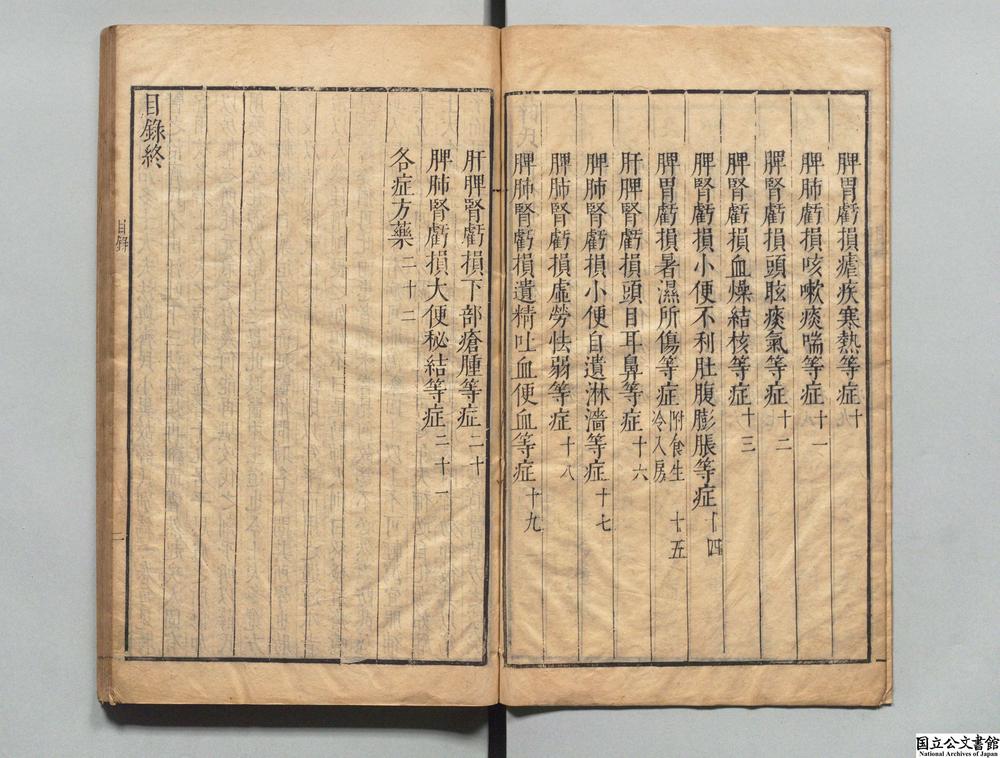 脾胃虧損瘧疾寒熱等症十
脾肺虧損咳嗽痰喘等症十一
脾腎虧損頭眩痰氣等症十二
脾腎虧損血燥結核等症十三
脾腎虧損小便不利肚腹膨脹等症十四
脾胃虧損暑濕所傷等症附食生冷入房十五
肝脾腎虧損頭目耳鼻等症十六
脾肺腎虧損小便自遺淋濇等症十七
脾肺腎虧損虛勞怯弱等症十八
脾肺腎虧損遺精吐血便血等症十九
肝脾腎虧損下部瘡腫等症二十
脾肺腎虧損大便秘結等症二十一
各症方藥二十二
目錄終
目錄
一
国立公文書館
National Archives of Japan